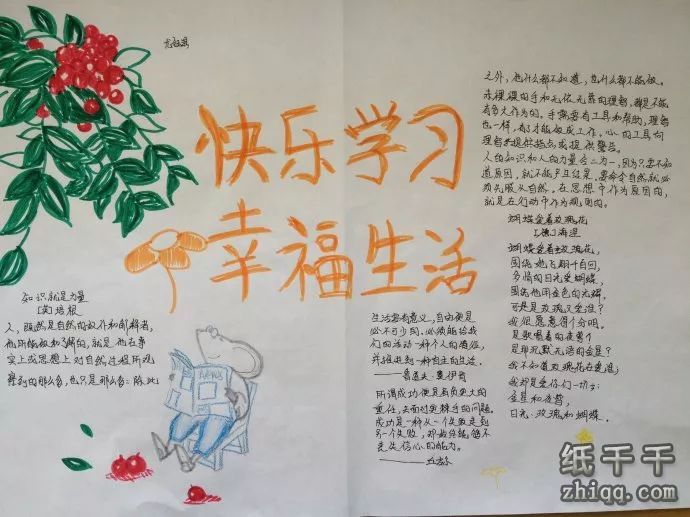 快乐学习
幸福生活
知识就是力量
[英]培根
人，既然是自然的仆人和解释者，
他所能做和了解的，就是他在事
实上或思想上对自然过程所观
察到的那么多，也只是那么多：除此
之外，他什么都不知道，也什么都不能做。
赤裸裸的手和无依无靠的理智，都是不能
有多大作为的。
理智
也一样，
心的工具向
理智来提供指点或提供警告。
人的知识和人的力量合二为一，因为只要不知
道原因，就不能产生结果，要命令自然就必
须先服从自然。在思想中作为原因的，
就是在行动中作为规则的。
蝴蝶爱着玫瑰花
[德]海涅
蝴蝶爱着玫瑰花，
围绕她飞翔千百回，
多情的日光爱蝴蝶，
围绕他用金色的光辉，
可是，玫瑰又爱谁？
我很愿意得个分明。
是歌唱着的夜莺？
是那沉默无语的金星？
我不知道玫瑰花在爱谁；
我却是爱你们一切：
金星和夜莺，
日光、玫瑰和蝴蝶。
生活要有意义，自由便是
必不可少的，必须能给我
们的活动一种个人的
并推进到一种自主的生活。
所谓成功便是肩负更大的
责任，去面对更棘手的问题。
成功是一种从一个失败走到
另一个失败，却始终能够不
丧失信心的能力。
——丘吉尔
纸干干
zhiqq.com